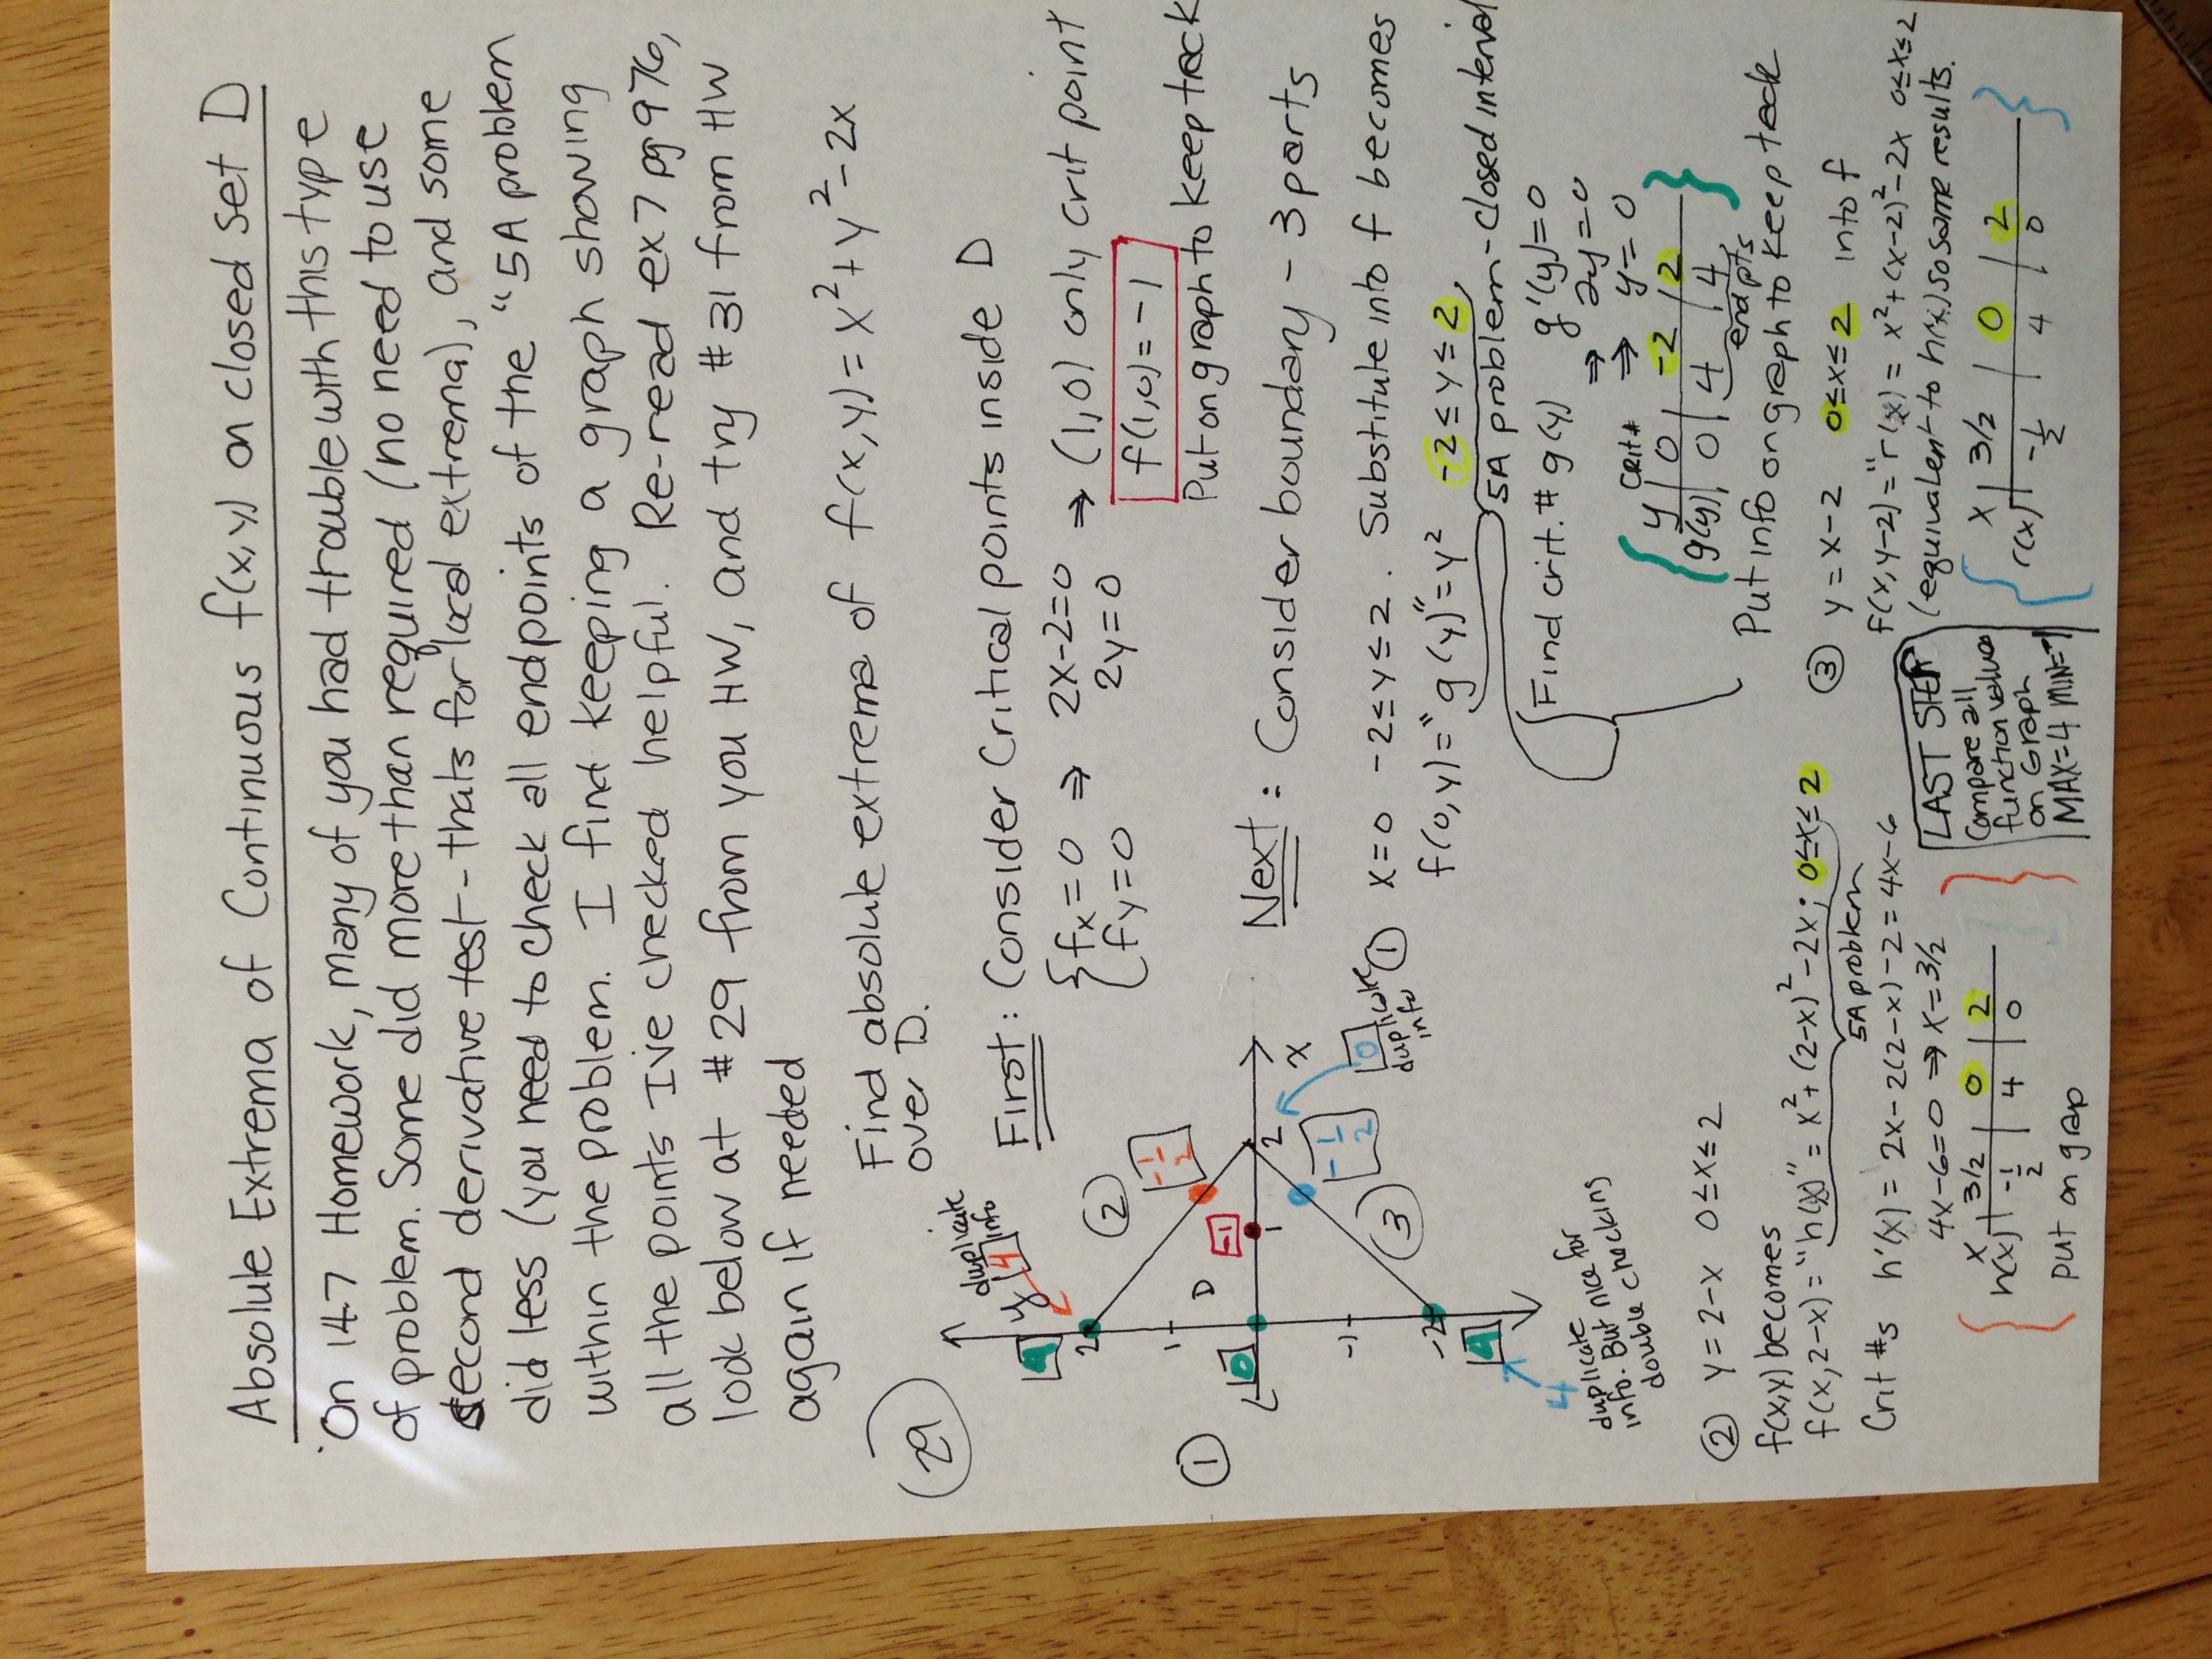 Absolute Extrema of Continuous f(x,y) on closed set D
On 14.7 Homework, many of you had trouble with this type
of problem. Some did more than required (no need to use
second derivative test - thats for local extrema), and some
did less (you need to check all endpoints of the "5A problem
within the problem. I find keeping a graph showing
all the points I've checked helpful. Re-read ex 7 pg 976,
look below at #29 from you HW, and try #31 from HW
again if needed
(29) Find absolute extrema of f(x,y) = x²+y²-2x
over D.
First: Consider Critical points inside D
{fx=0 ⇒ 2x-2=0 ⇒ (1,0) only crit point
{fy=0 2y=0
f(1,0)=-1
Put on graph to keep track
y
duplicate
info
4
4
2
②
-1/2
1
D
①
0
-1
1
2
x
-1
③
-1/2
0
duplicate
info
-2
4
4
duplicate nice for
info. But nice for
double checking
Next: Consider boundary - 3 parts
① x=0 -2≤y≤2. Substitute into f becomes
f(0,y)="g(y)"=y² -2≤y≤2
5A problem-closed interval
Find crit. # g(y) g'(y)=0
⇒ 2y=0
⇒ y=0
crit #
y | 0 | -2 | 2
g(y) | 0 | 4 | 4
endpts
Put info on graph to keep track
② y=2-x 0≤x≤2
f(x,y) becomes
f(x,2-x)="h(x)"=x²+(2-x)²-2x; 0≤x≤2
5A problem
Crit #s h'(x)=2x-2(2-x)-2=4x-6
4x-6=0 ⇒ x=3/2
x | 3/2 | 0 | 2
h(x) | -1/2 | 4 | 0
put on grap
③ y=x-2 0≤x≤2 into f
f(x,y-2)="r(x)=x²+(x-2)²-2x 0≤x≤2
(equivalent to h(x) so same results.
x | 3/2 | 0 | 2
r(x) | -1/2 | 4 | 0
LAST STEP
Compare all
function values
on Graph
MAX=4 MIN=-1